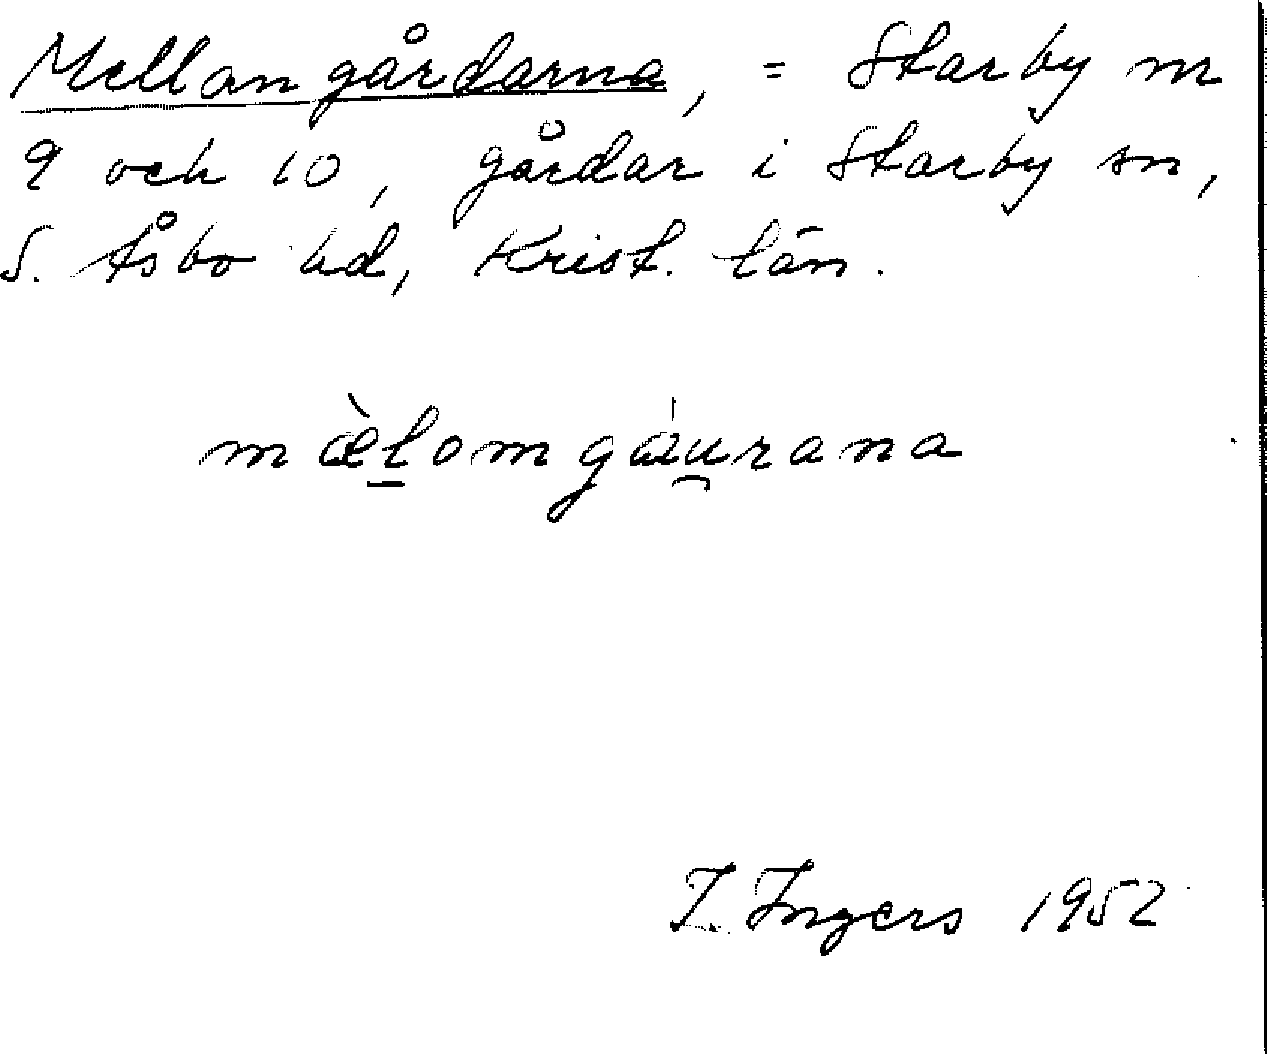 Mellangårdarna, = Starby nr
9 och 10, gårdar i Starby sn,
S. Åsbo hd, Krist. län.
mæ̀l̲omgáu̯rana
I. Ingers 1952